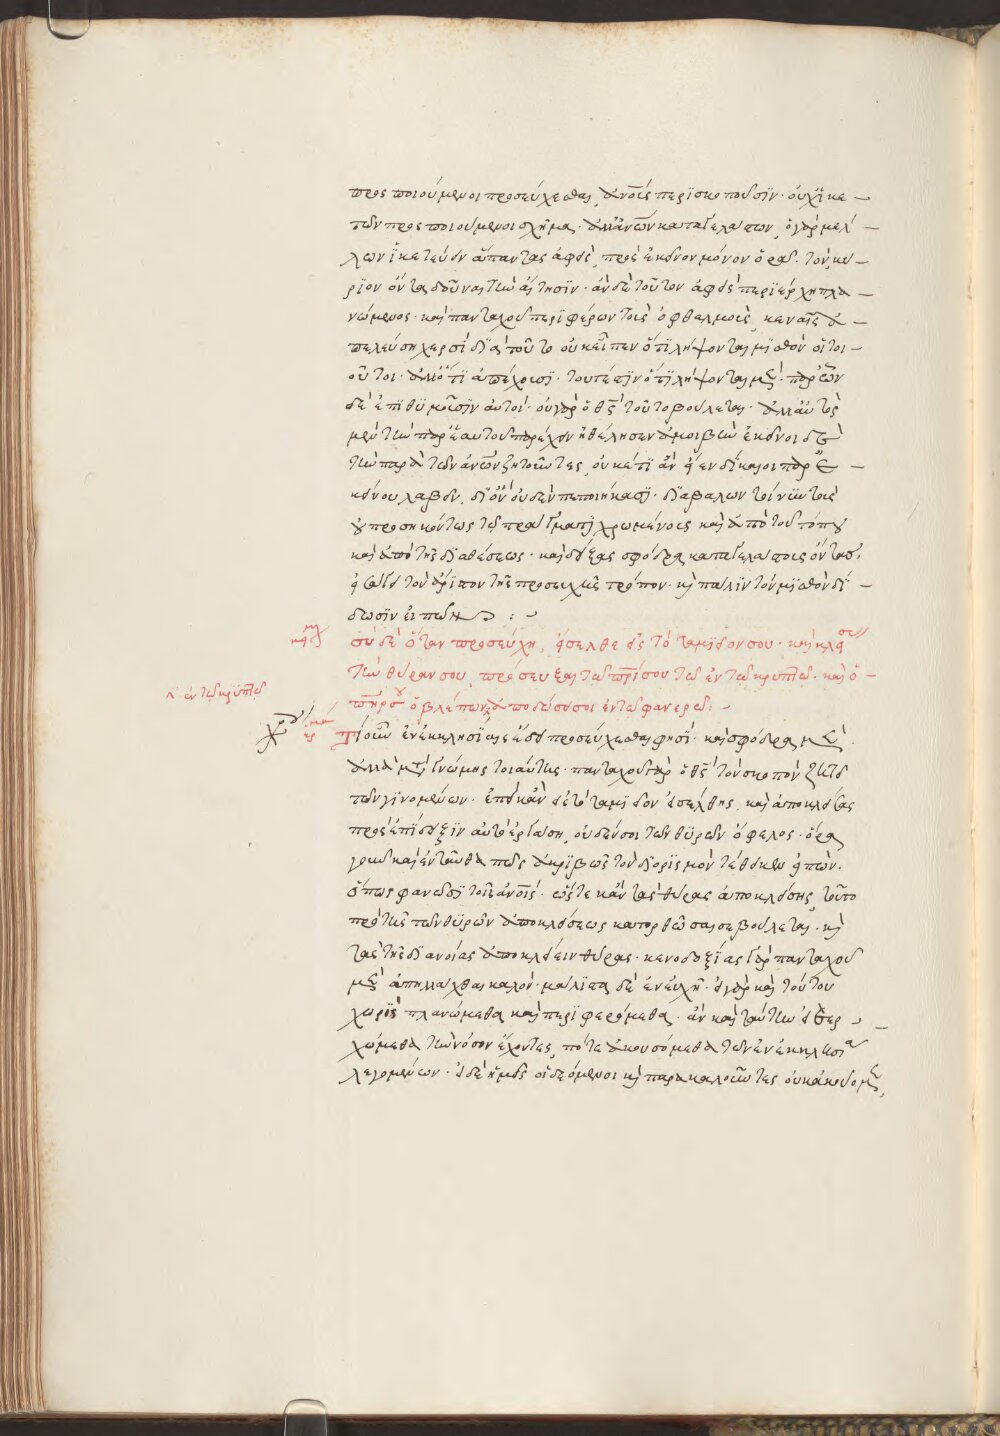 προς ποιούμενοι προσεύχεσθαι, ἀνοῖς περϊσκοποῦσϊν· οὐχϊ ἱκε –
τῶν προς ποιούμενοι σχῆμα· ἀλλ' ἀνῶν καταγελάστων, ὁ γὰρ μέλ –
λων ἱκετεύειν ἅπαντας ἀφεὶς, πρὸς ἐκεῖνον μόνον ὁρᾶ· τὸν κυ
ρϊον ὄντα δοῦναι τὴν αἴτησϊν· ἂν δὲ τοῦτον ἀφεὶς περϊέρχη πλα –
νώμενος· καὶ πανταχοῦ περϊφέρων τοὺς ὀφθαλμοὺς, κεναῖς ἀ –
πελεύση χερσί· δϊὰ τοῦτο οὐκ εἶπεν ὅτϊ λήψονται μϊσθὸν οἱ τοι –
οῦτοι· ἀλλ' ὅτϊ ἀπέχουσϊ· τουτέστϊν ὅτϊ λήψονται μὲν· παρ' ὧν
δὲ ἐπϊθυμοῦσϊν αὐτοί· οὐ γὰρ ὁ θς τοῦτο βούλεται· ἀλλ' αὐτὸς
μὲν τὴν παρ' ἑαυτοῦ παρέχειν ἠθέλησεν ἀμοιβὴν ἐκεῖνοι δὲ
τὴν παρὰ τῶν ἀνῶν ζητοῦντες, οὐκέτϊ ἂν εἶεν δίκαιοι παρ' ἐ –
κείνου λαβεῖν, δϊ' ὃν οὐδὲν πεποιήκασϊ· δϊαβαλὼν τοίνυν τοὺς
οὐ προσηκόντως τῶ πράγματϊ χρωμένους καὶ ἀπὸ τοῦ τόπου
καὶ ἀπὸ τῆς δϊαθέσεως· καὶ δείξας σφόδρα καταγελάστους ὄντας,
εἰσάγει τὸν ἄρϊστον τῆς προσευχῆς τρόπον· κ πάλϊν τὸν μϊσθὸν δί –
δωσϊν εἰπὼν : –
σὺ δὲ ὅταν προσεύχη, εἴσελθε εἰς τὸ ταμϊεῖόν σου· καὶ κλεί σας
τὴν θύραν σου, πρόσευξαι τῶ πρί σου τῶ ἐν τῶ κρυπτῶ· καὶ ὁ –
πηρ σου ὁ βλέπων, ἀποδώσει σοι ἐν τῶ φανερῶ : –
ἐν τῶ κρυπτῶ
Τί οὖν ἐν ἐκκλησία οὐ δεῖ προσεύχεσθαι φησϊ· καὶ σφόδρα μὲν·
ἀλλὰ μετὰ γνώμης τοιαύτης· πανταχοῦ γὰρ ὁ θς τὸν σκοπὸν ζητεῖ
τῶν γϊνομένων· ἐπεὶ κἂν εἰς τὸ ταμϊεῖον εἰσέλθης, καὶ ἀποκλείσας
πρὸς ἐπϊδειξϊν αὐτὸ ἐργάση, οὐδέν σοι τῶν θυρῶν ὄφελος· ὅρα
γοῦν καὶ ἐνταῦθα πῶς ἀκρϊβῶς τὸν δϊορϊσμὸν τέθεικεν εἰπών·
ὅπως φανῶσϊ τοῖς ἀνοις· ὥστε κἂν τὰς θύρας ἀποκλείσης, τοῦτο
πρὸ τῆς τῶν θυρῶν ἀποκλείσεως κατορθῶσαι σε βούλεται· κ
τὰς τῆς δϊανοίας ἀποκλείειν θύρας· κενοδοξίας γὰρ πανταχοῦ
μὲν ἀπηλλάχθαι καλόν· μάλϊστα δὲ ἐν εὐχῆ· εἰ γὰρ καὶ τούτου
χωρὶς πλανώμεθα καὶ περϊφερόμεθα· ἂν καὶ ταύτην εἰσερ – –
χώμεθα τὴν νόσον ἔχοντες, πότε ἀκουσόμεθα τῶν ἐν ἐκκλησία
λεγομένων· εἰ δὲ ἡμεῖς οἱ δεόμενοι κ παρακαλοῦντες οὐκ ἀκούομεν,